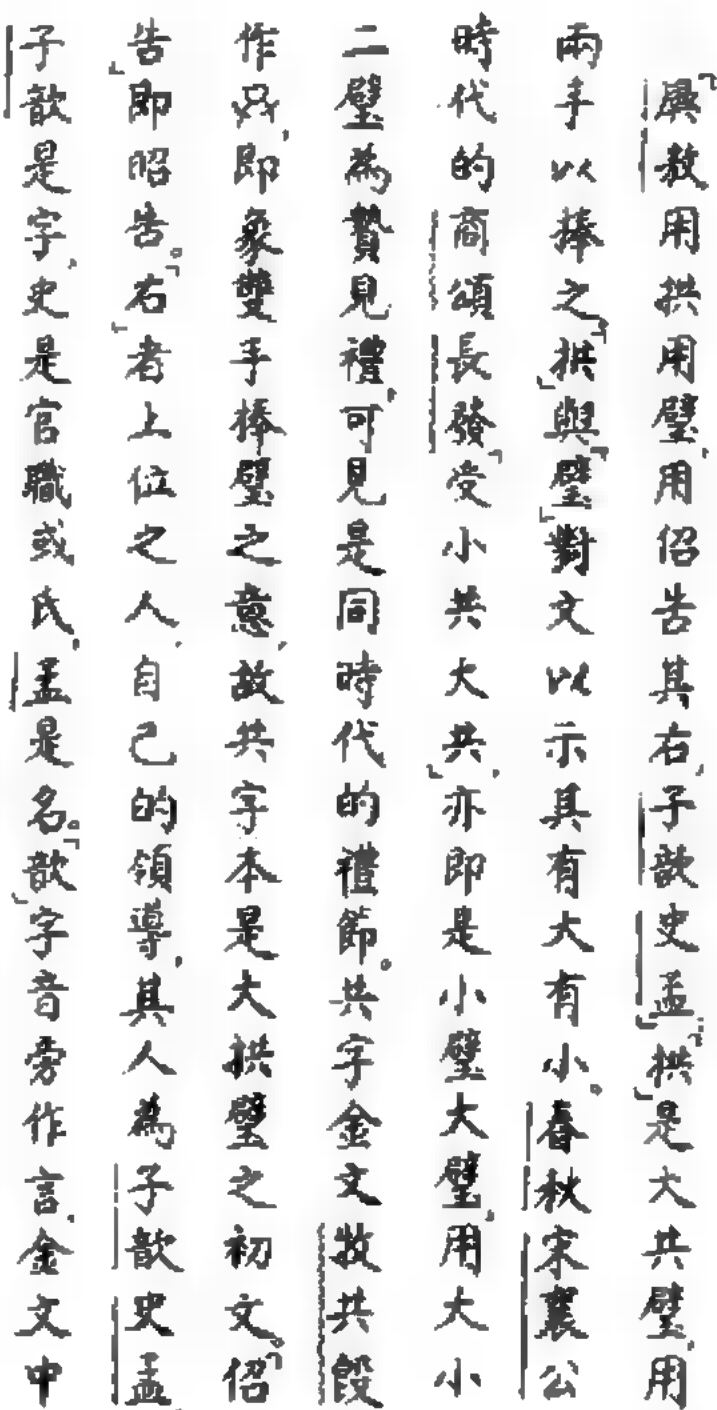 「興敖用拱用璧，用佋告其右，子歆史孟。」「拱」是大共璧，用
兩手以捧之，「拱」與「璧」對文以示其有大有小。春秋宋襄公
時代的商頌長發「受小共大共」，亦即是小璧大璧，用大小
二璧為贄見禮，可見是同時代的禮節。共字金文牧共𣪘
作，即象雙手捧璧之意，故共字本是大拱璧之初文。「佋
告」即昭告。「右」者上位之人，自己的領導，其人為子歆史孟，
子歆是字，史是官職或氏，孟是名。「歆」字音旁作言，金文中